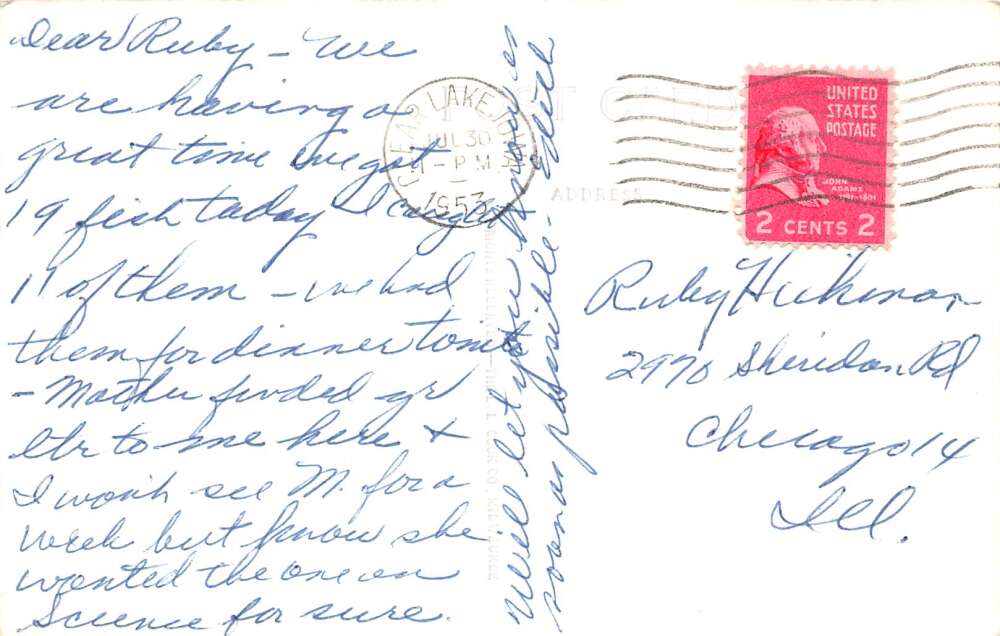 Dear Ruby - We
are having a
great time we got
19 fish today I caught
11 of them - we had
them for dinner tonite
- Mother forwded yr
ltr to me here &
I won't see M. for a
week but know she
wanted the one on
Science for sure.
Will let you know as
soon as possible -
CLEAR LAKE, IOWA
JUL 30
1 - PM
1953
POST CARD
ADDRESS
UNITED
STATES
POSTAGE
JOHN
ADAMS
2 CENTS 2
Ruby Hickman
2970 Sheridan Rd
Chicago 14
Ill.